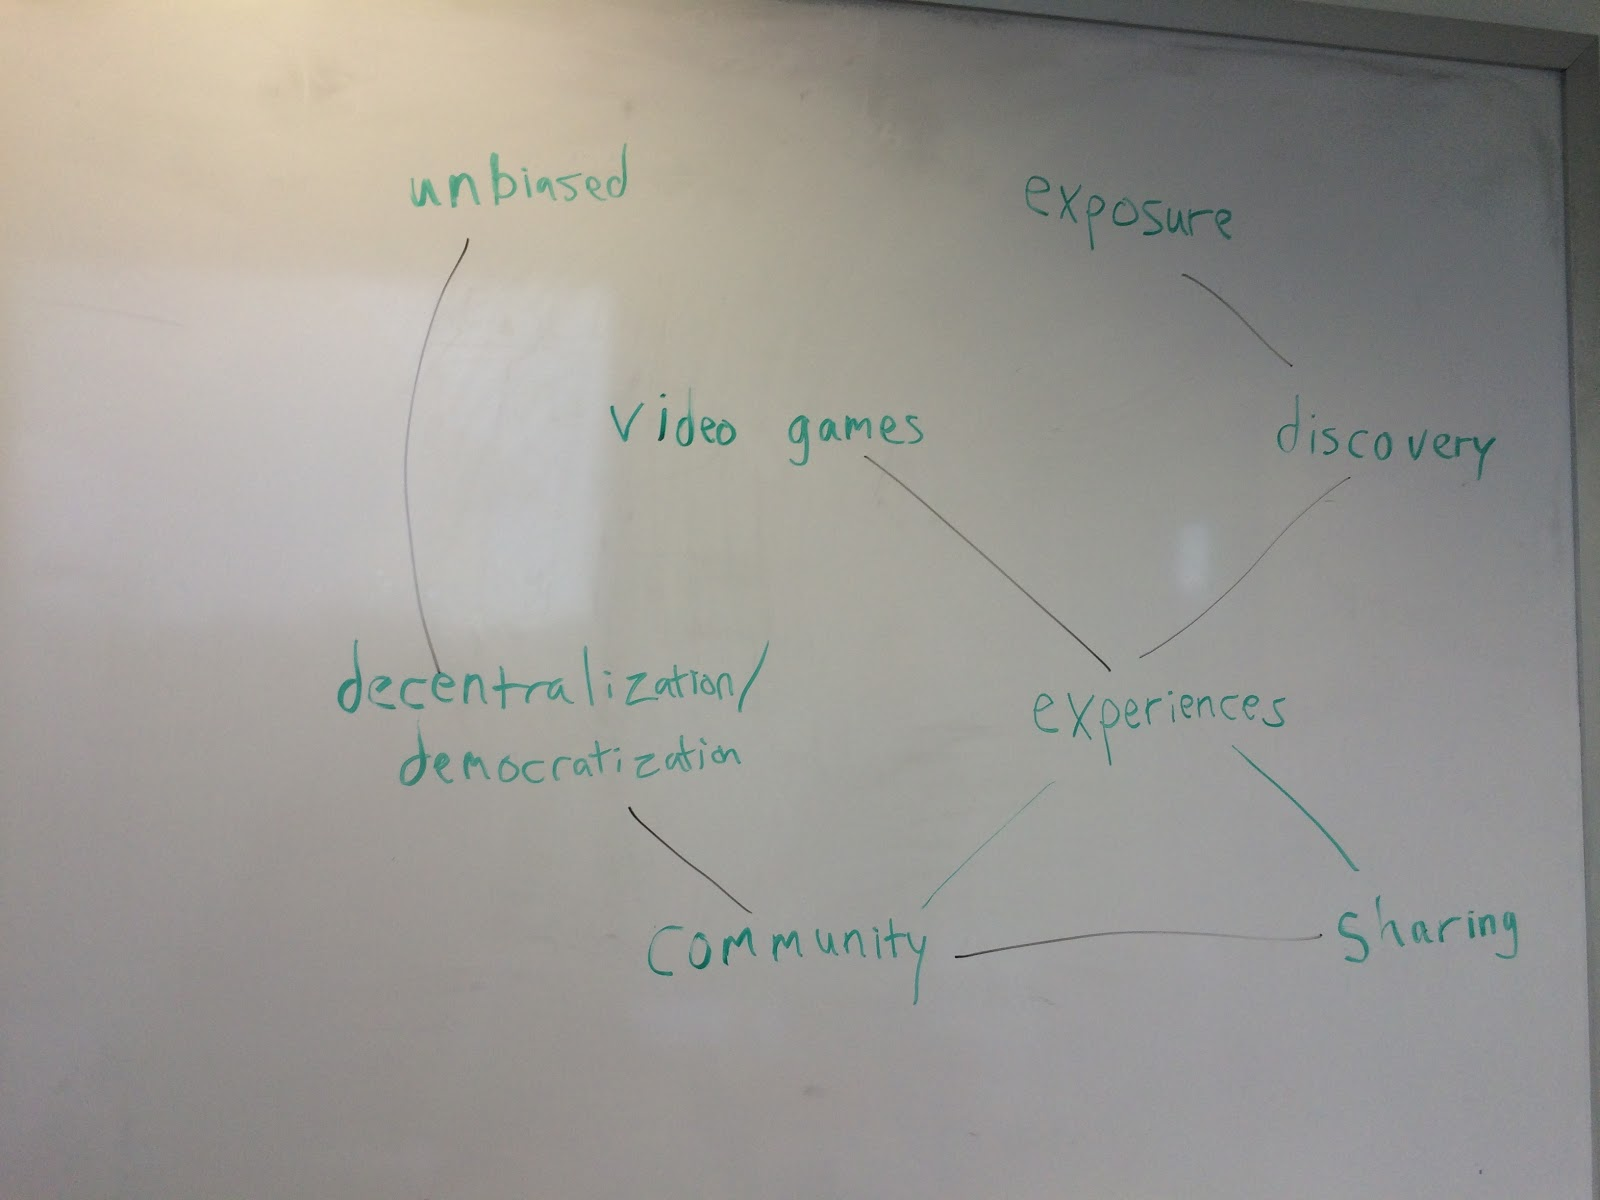 unbiased
exposure
video games
discovery
decentralization/
democratization
experiences
community
sharing